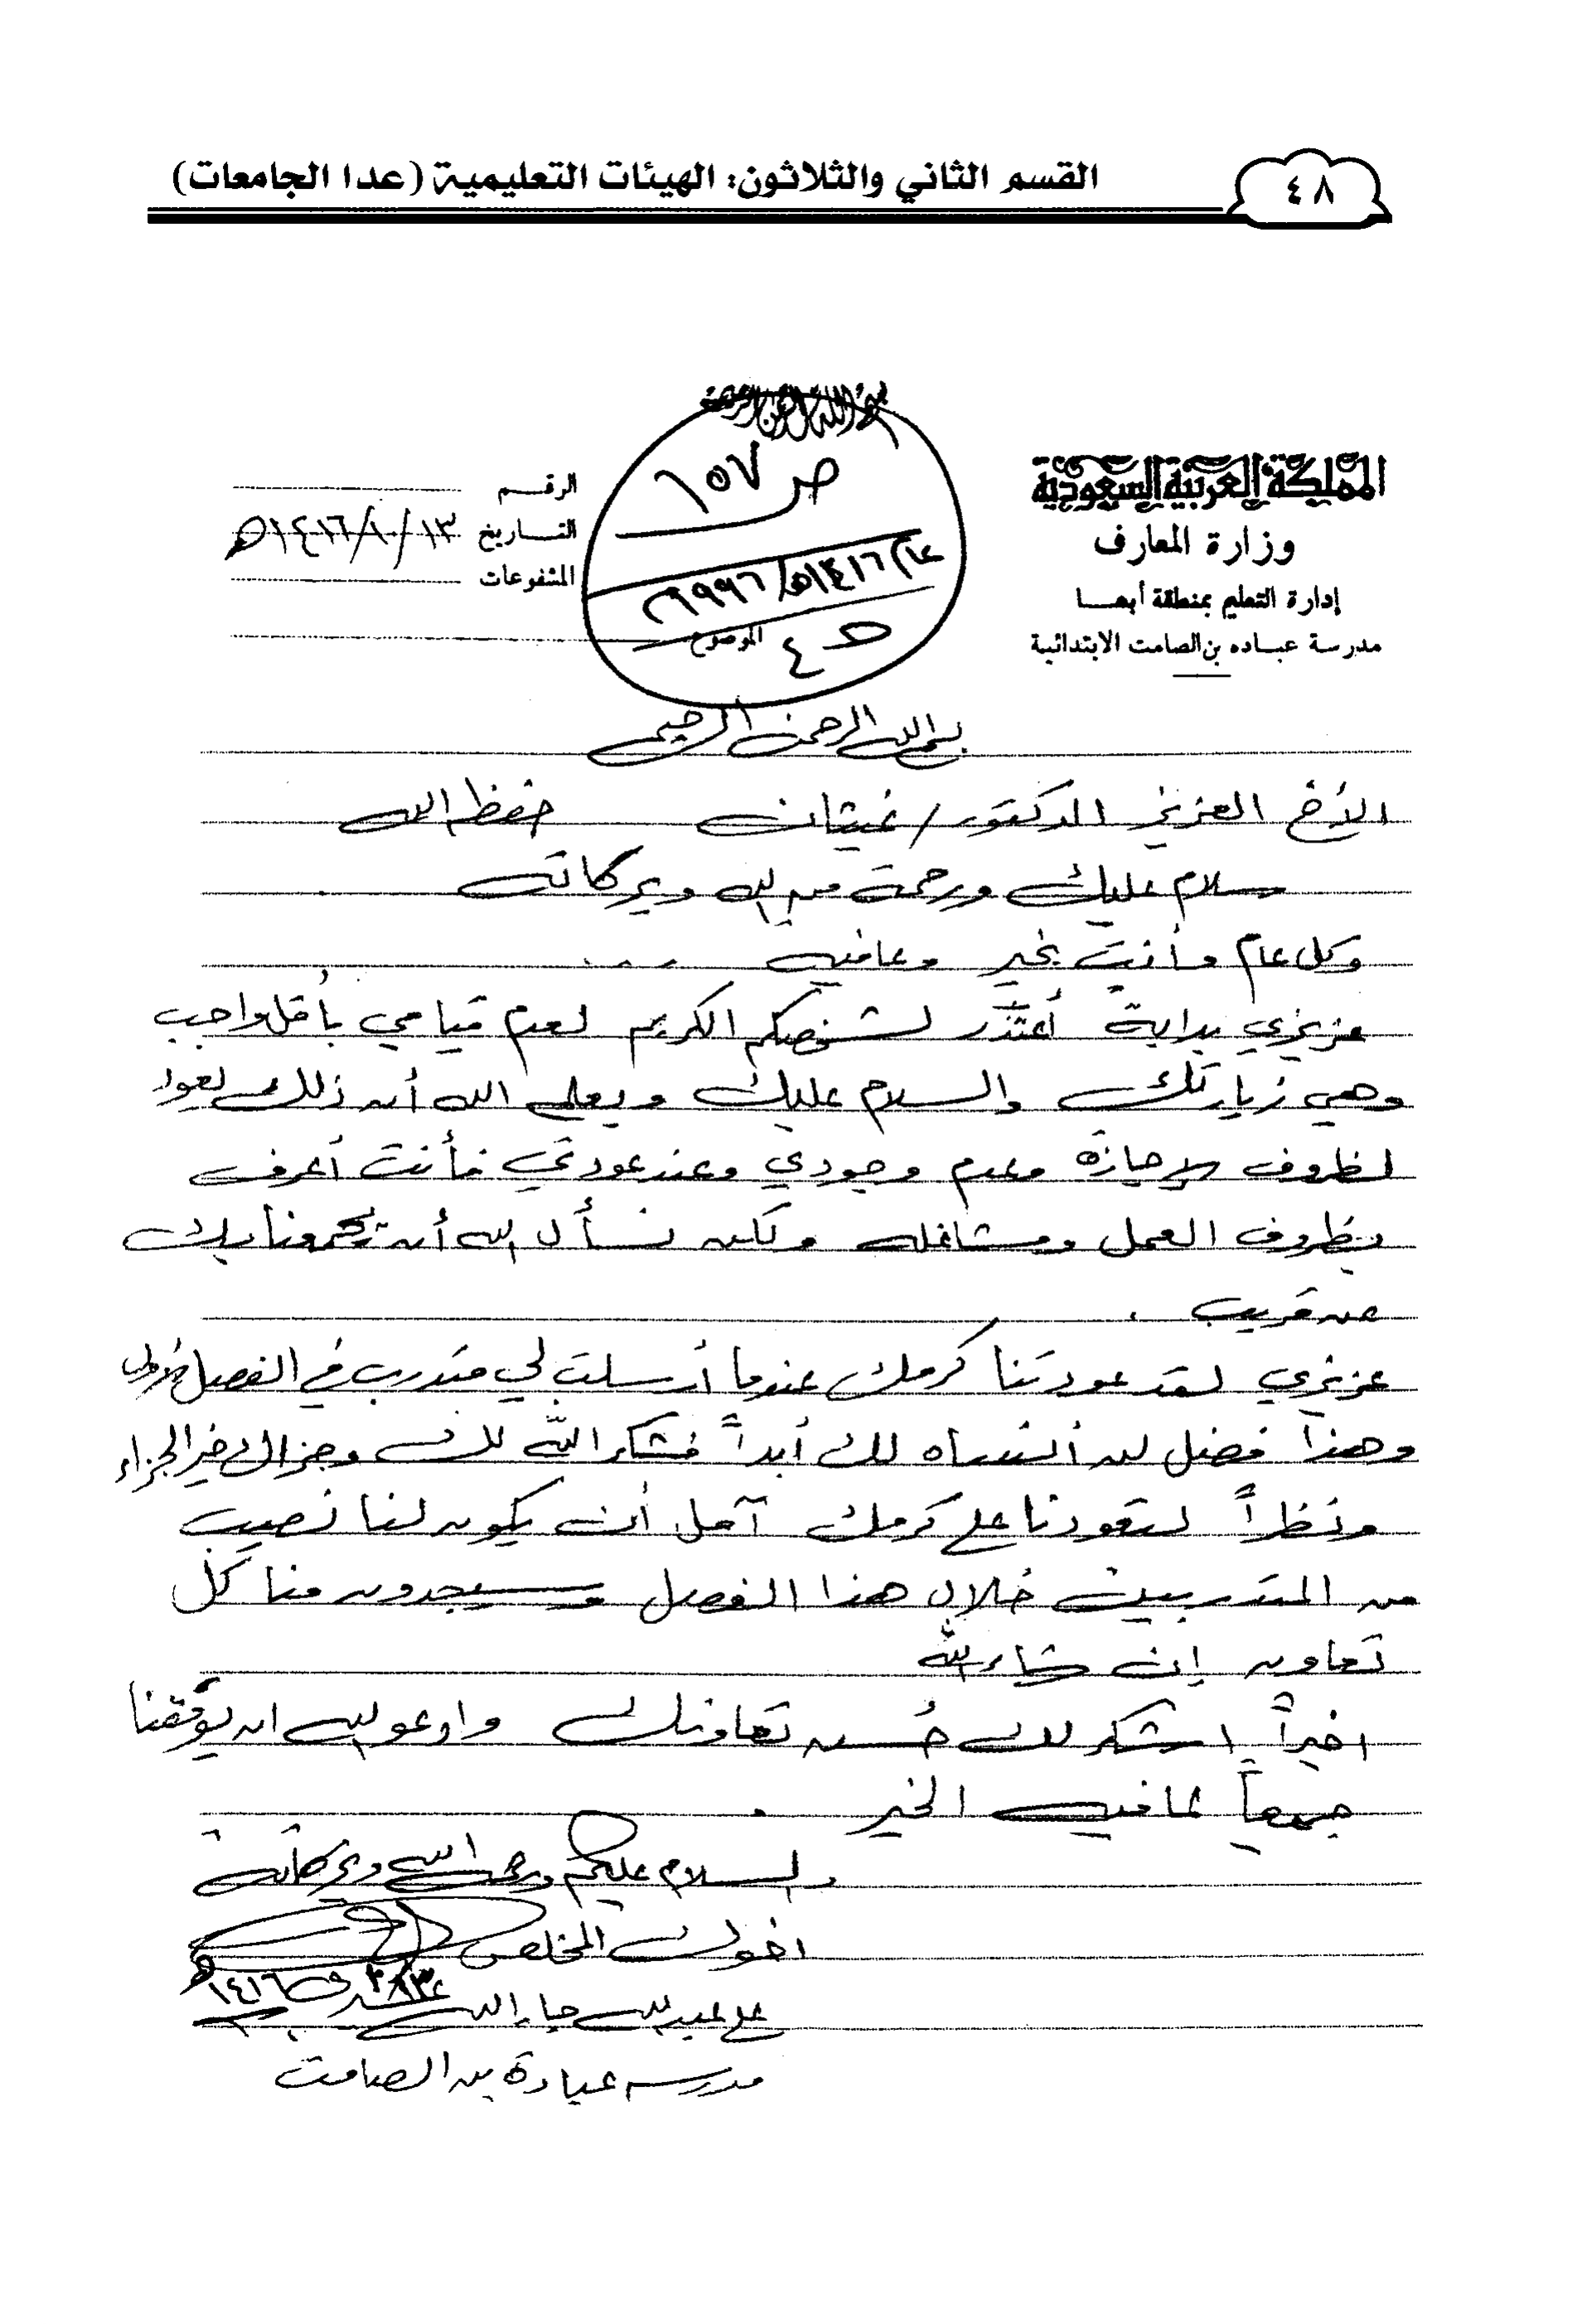 ٤٨
القسم الثاني والثلاثون: الهيئات التعليمية (عدا الجامعات)
بسم الله الرحمن الرحيم
المملكة العربية السعودية
وزارة المعارف
إدارة التعليم بمنطقة أبهــا
مدرسة عباده بن الصامت الابتدائية
الرقم
التاريخ ١٣/١٠/١٤١٦هـ
المشفوعات
الموضوع
ص ١٥٧
بسم الله الرحمن الرحيم
الأخ العزيز الدكتور / غيثان حفظه الله
سلام عليك ورحمة من الله وبركاته
وكل عام وأنت بخير وعافيه ...
عزيزي بداية أعتذر لشخصكم الكريم لعدم قيامي بأقل واجب
وهي زيارتك والسلام عليك ويعلم الله أن ذلك يعود
لظروف الإجازة وعدم وجودي وعند عودتي فأنت أعرف
بظروف العمل ومشاغله ولكن نسأل الله أن يجمعنا بك
عن قريب .
عزيزي لقد عودتنا كرمك عندما أرسلت لي متدرب في الفصل الأول
وهذا فضل لن أنساه لك أبداً فشكر الله لك وجزاك خير الجزاء
ونظراً لتعودنا على كرمك آمل أن يكون لنا نصيب
من المتدربين خلال هذا الفصل وسيجدون منا كل
تعاون إن شاء الله
اخيراً اشكر لك حُسن تعاونك وادعو الله ان يوفقنا
جميعاً لما فيه الخير .
والسلام عليكم ورحمة الله وبركاته
اخوك المخلص
علي عبدالله جار الله
مدرسه عبادة بن الصامت